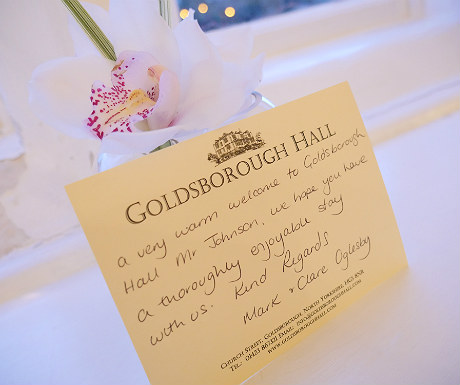 GOLDSBOROUGH HALL
a very warm welcome to Goldsborough
Hall Mr Johnson, we hope you have
a thoroughly enjoyable stay
with us. Kind Regards
Mark & Clare Oglesby
CHURCH STREET, GOLDSBOROUGH, NORTH YORKSHIRE HG5 8NR
TEL: 01423 867321 EMAIL: INFO@GOLDSBOROUGHHALL.COM
WWW.GOLDSBOROUGHHALL.COM